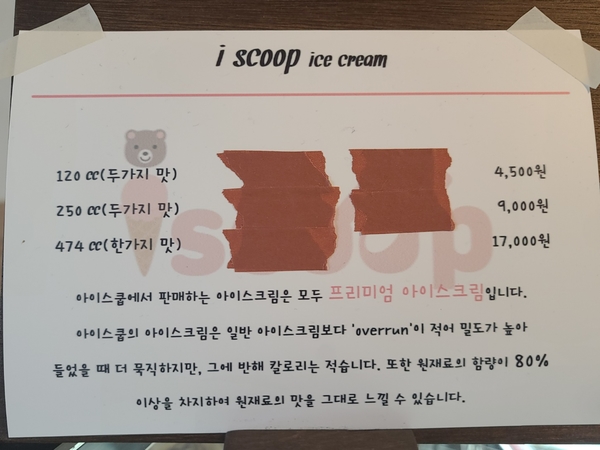 i scoop ice cream
120 cc(두가지 맛) 4,500원
250 cc(두가지 맛) 9,000원
474 cc(한가지 맛) 17,000원
iscoop
아이스쿱에서 판매하는 아이스크림은 모두 프리미엄 아이스크림입니다.
아이스쿱의 아이스크림은 일반 아이스크림보다 'overrun'이 적어 밀도가 높아
들었을 때 더 묵직하지만, 그에 반해 칼로리는 적습니다. 또한 원재료의 함량이 80%
이상을 차지하여 원재료의 맛을 그대로 느낄 수 있습니다.